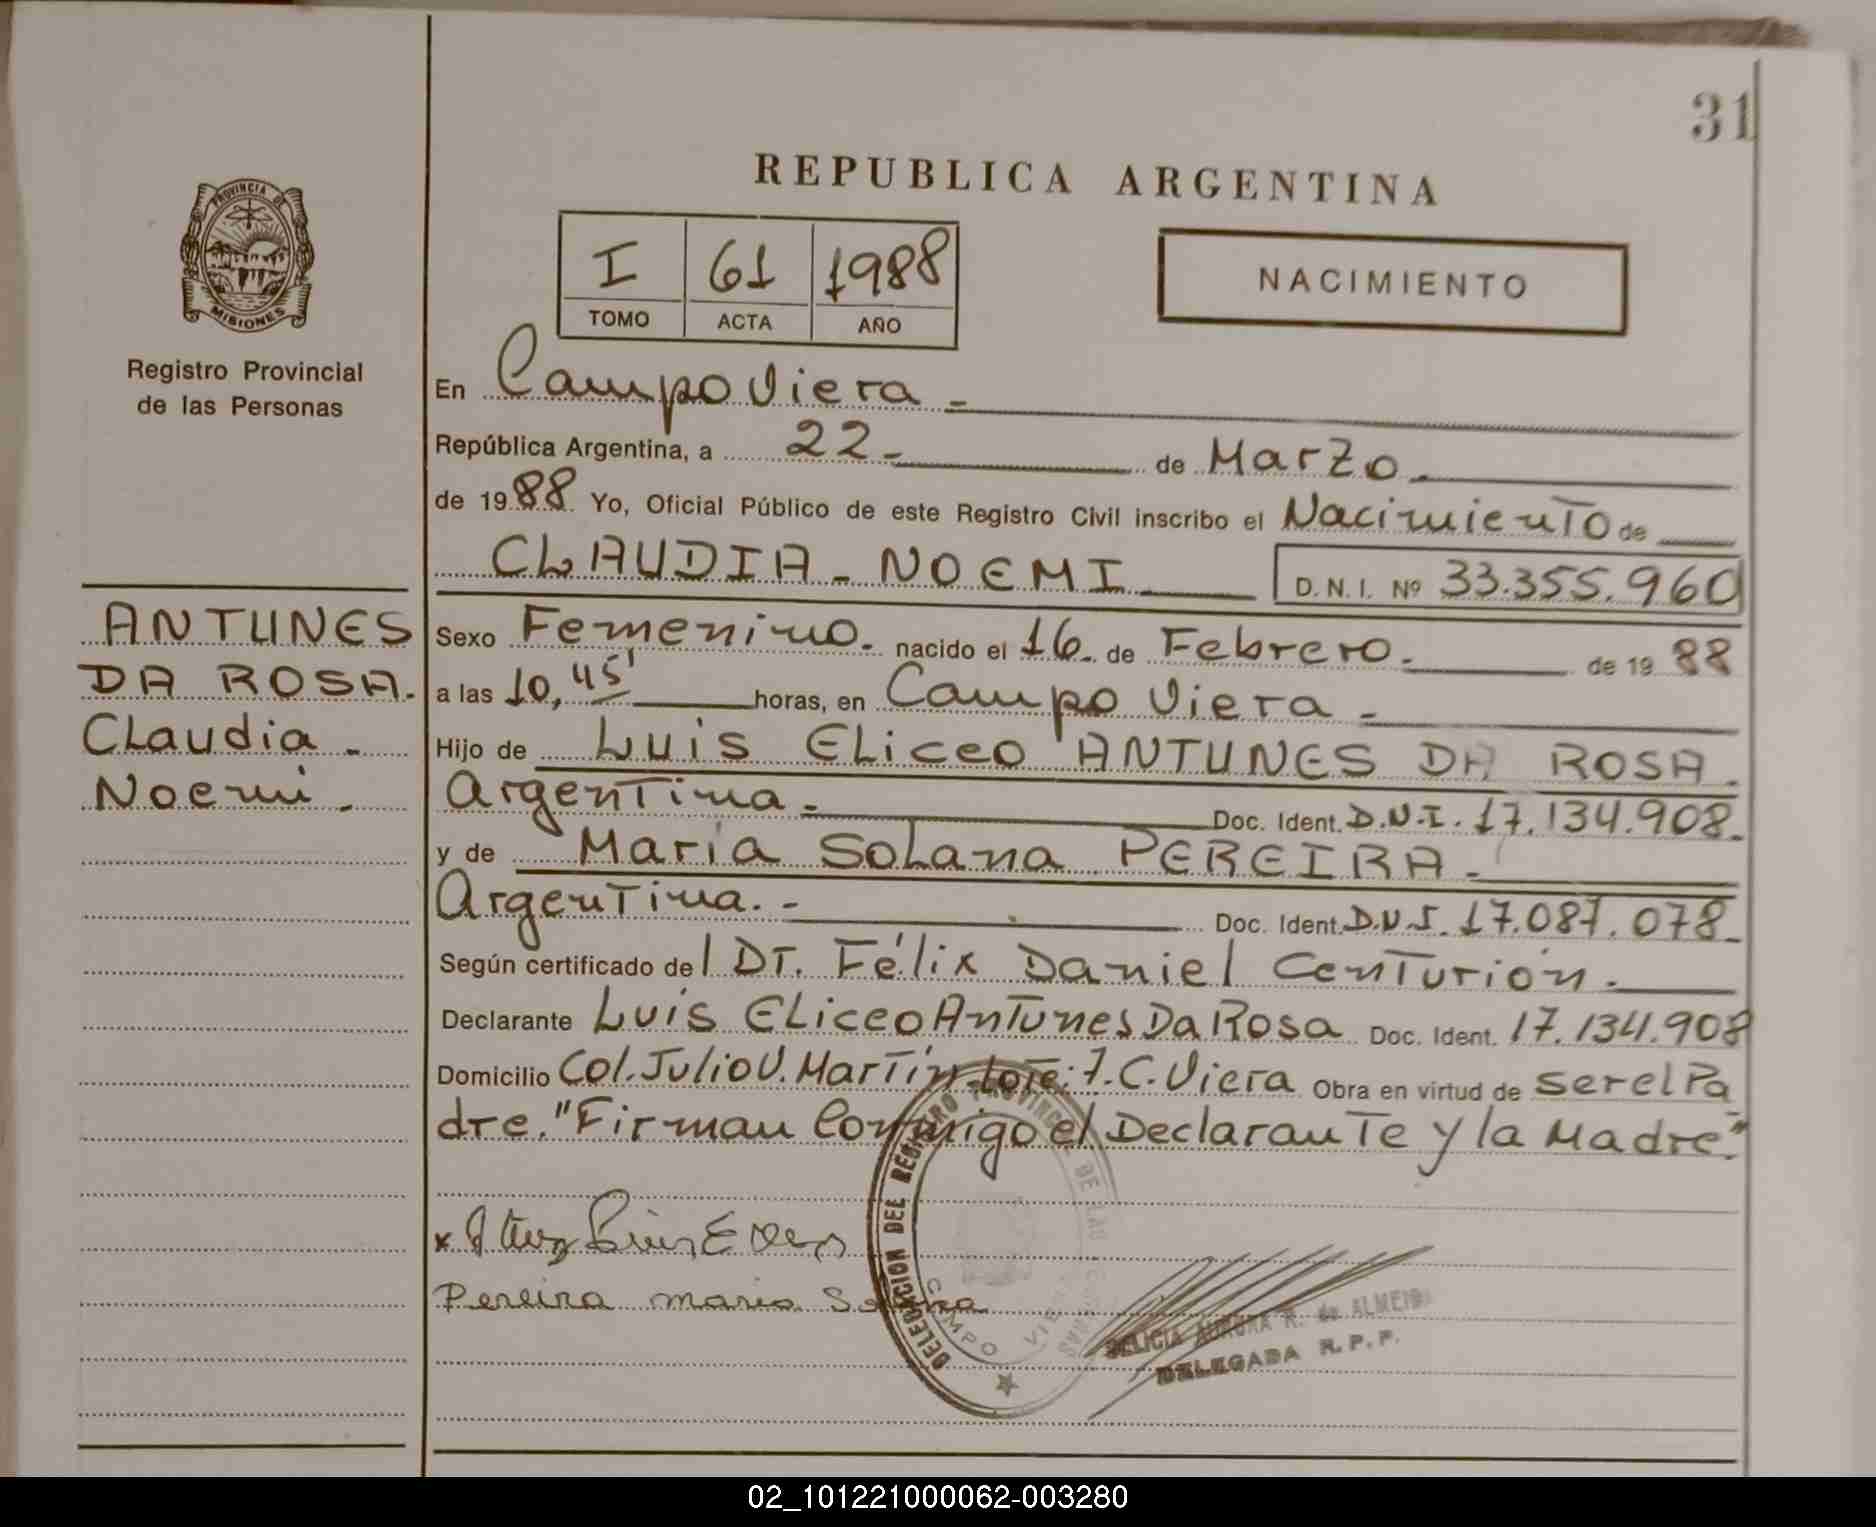 31
REPUBLICA ARGENTINA
PROVINCIA DE
MISIONES
Registro Provincial
de las Personas
I 61 1988
TOMO ACTA AÑO
NACIMIENTO
En Campo Viera -
República Argentina, a 22 - de Marzo
de 1988 Yo, Oficial Público de este Registro Civil inscribo el Nacimiento de
CLAUDIA - NOEMI D. N. I. Nº 33.355.960
ANTUNES
DA ROSA.
Claudia -
Noemi.
Sexo Femenino. nacido el 16. de Febrero. de 19 88
a las 10,45' horas, en Campo Viera -
Hijo de Luis Eliceo ANTUNES DA ROSA.
Argentina. Doc. Ident. D.N.I. 17.134.908.
y de Maria Solana PEREIRA.
Argentina. - Doc. Ident. D.N.I. 17.087.078.
Según certificado del Dr. Félix Daniel Centurión.
Declarante Luis Eliceo Antunes Da Rosa Doc. Ident. 17.134.908
Domicilio Col. Julio U. Martín Lote: 7. C. Viera Obra en virtud de ser el Pa
dre. "Firman Conmigo el Declarante y la Madre."
Pereira maria Solana
DELEGACION DEL REGISTRO PROVINCIAL DE LAS
CAMPO VIERA
DELICIA AURORA R. de ALMEIDA
DELEGADA R. P. P.
02_101221000062-003280